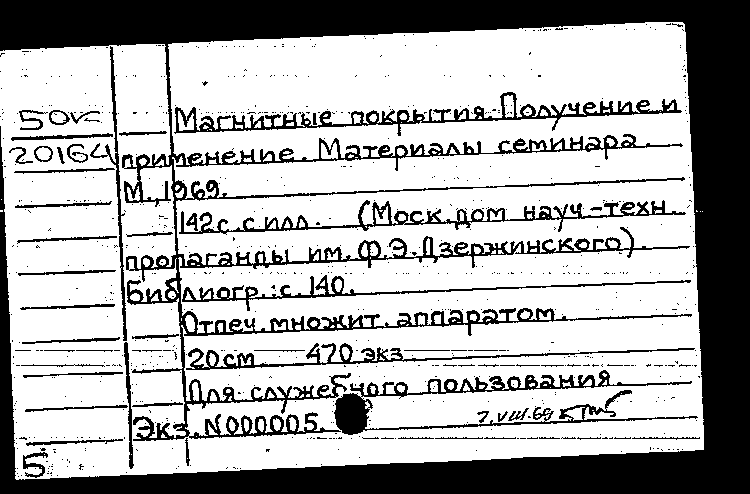 50vc Магнитные покрытия. Получение и
20164 применение. Материалы семинара.
М., 1969.
142с. с илл. (Моск. дом науч-техн.
пропаганды им. Ф.Э. Дзержинского).
Библиогр.: с. 140.
Отпеч. множит. аппаратом.
20см 470 экз.
Для служебного пользования.
Экз. N000005. 7.VIII.69
5